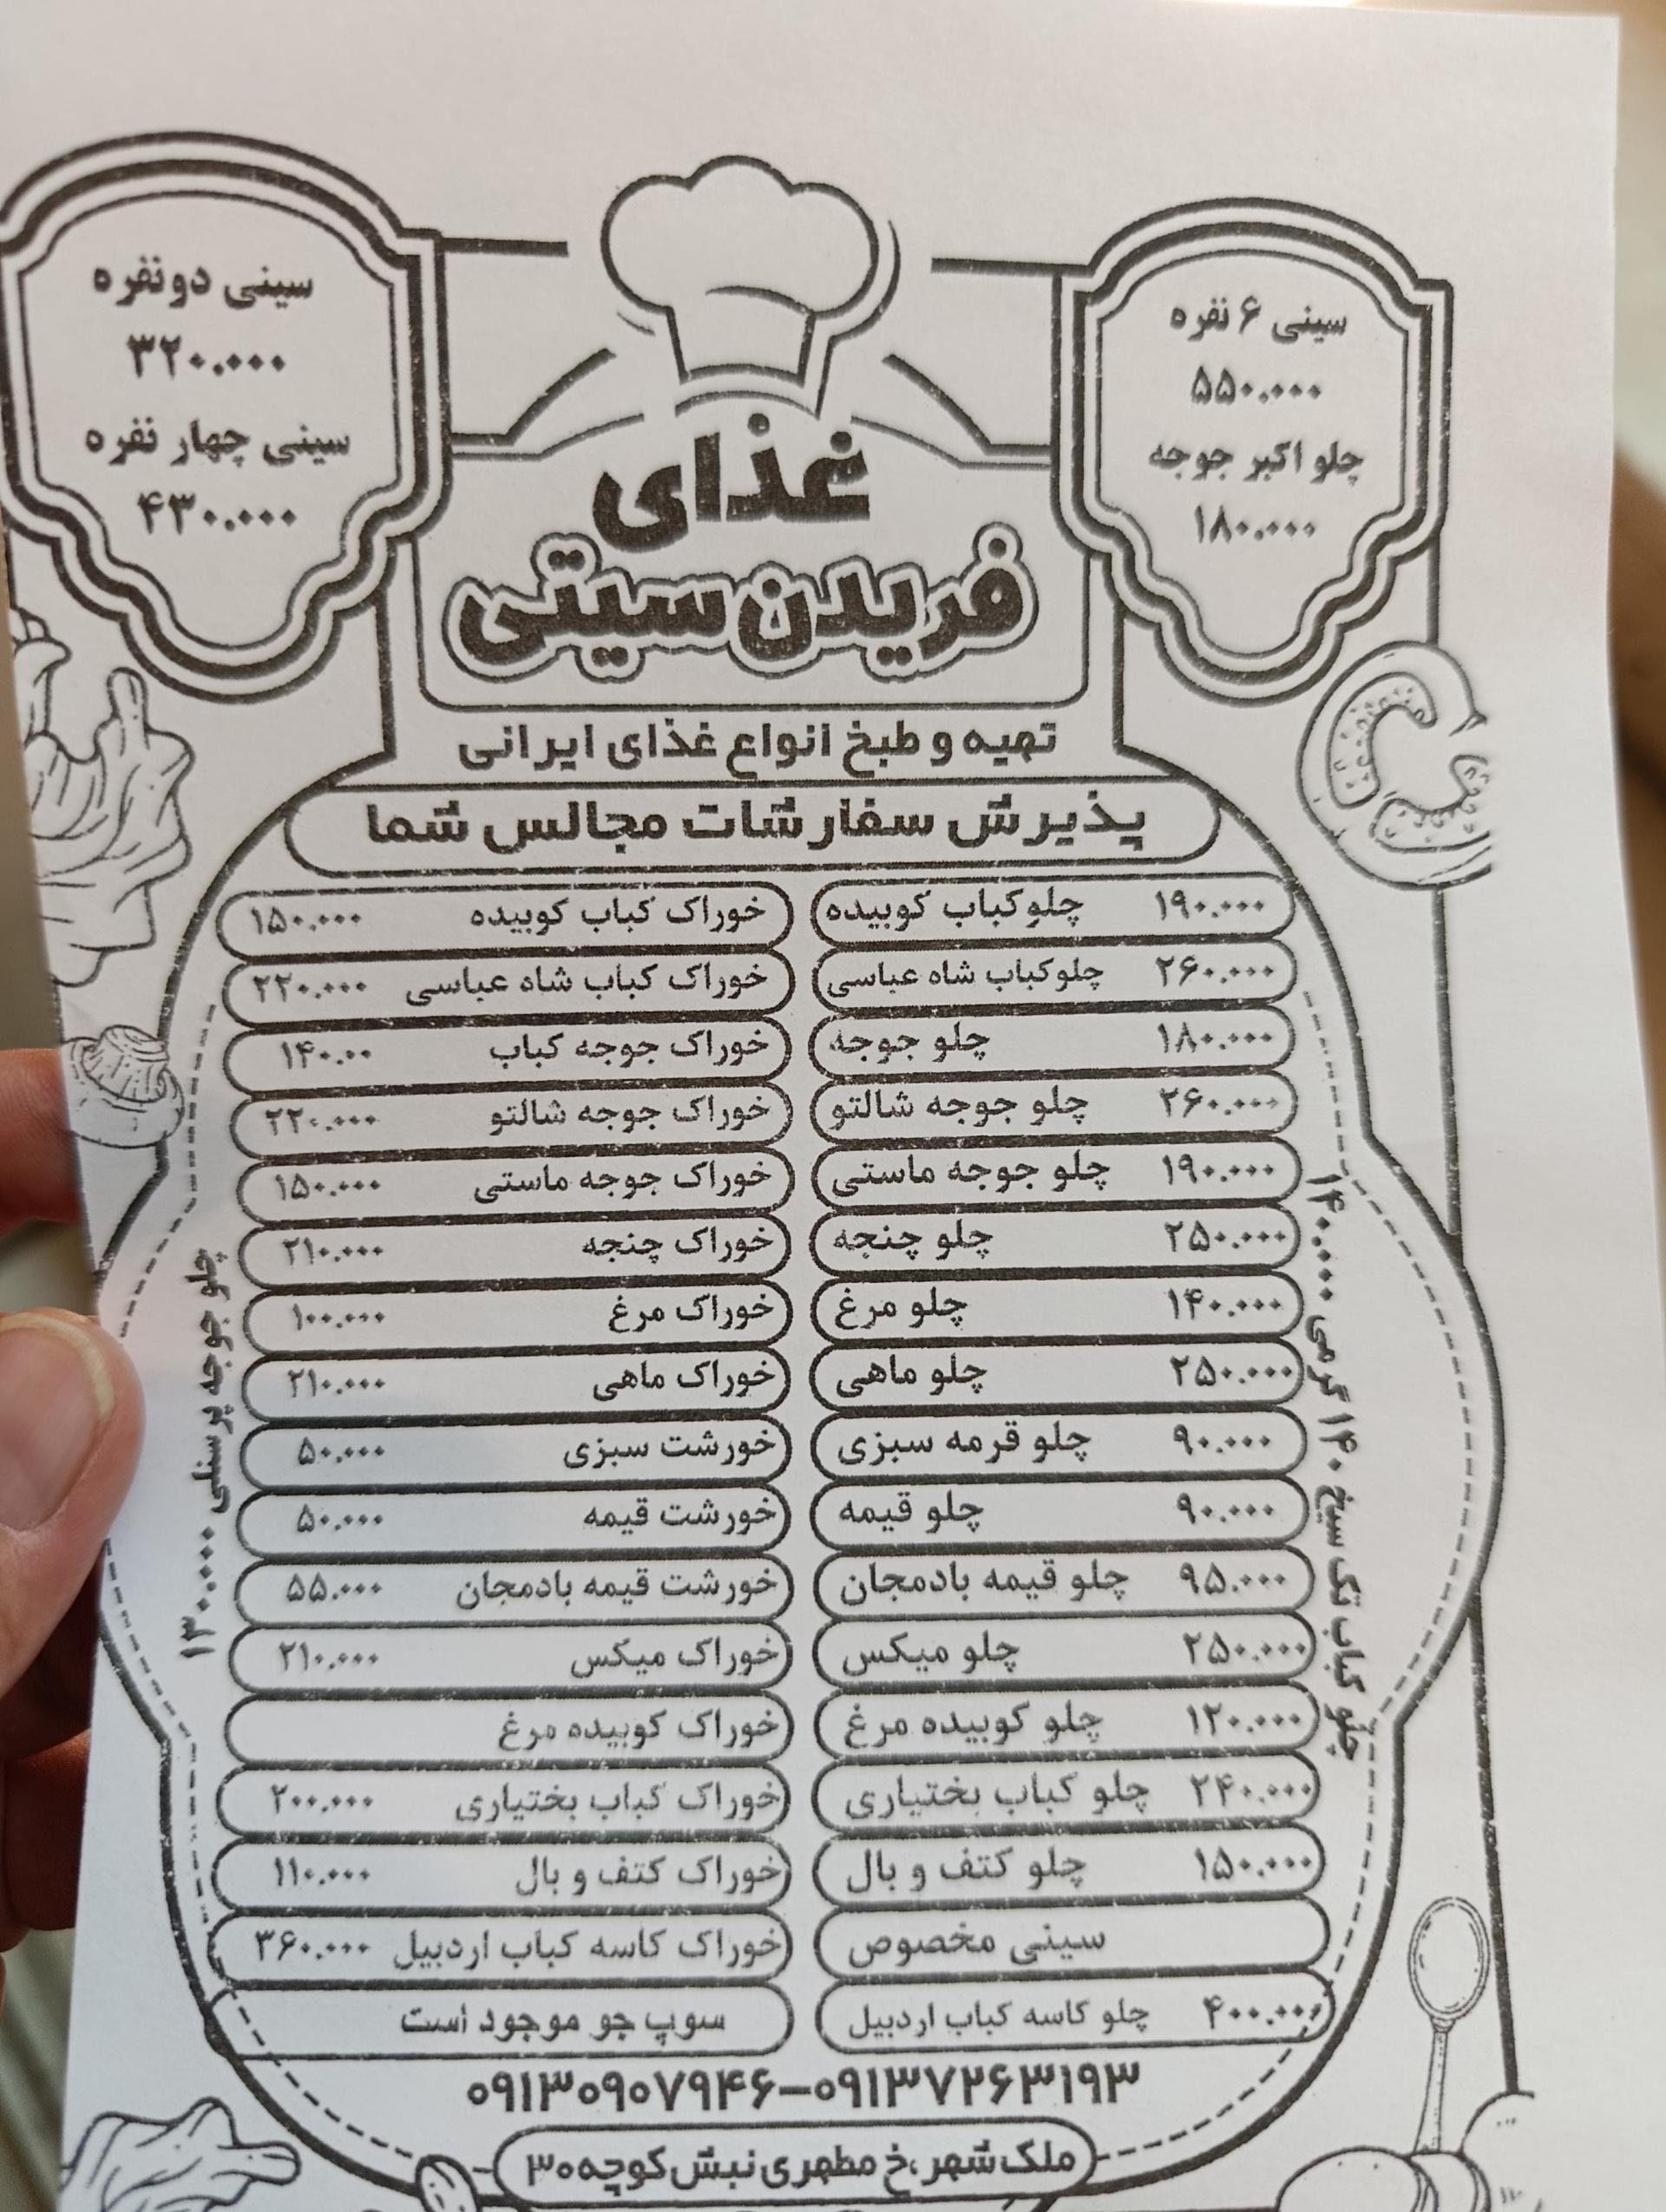 سینی ۶ نفره
۵۵۰.۰۰۰
چلو اکبر جوجه
۱۸۰.۰۰۰
سینی دو نفره
۳۲۰.۰۰۰
سینی چهار نفره
۴۳۰.۰۰۰
غذای
فریدن سیتی
تهیه و طبخ انواع غذای ایرانی
پذیرش سفارشات مجالس شما
چلوکباب کوبیده ۱۹۰.۰۰۰
چلوکباب شاه عباسی ۲۶۰.۰۰۰
چلو جوجه ۱۸۰.۰۰۰
چلو جوجه شالتو ۲۶۰.۰۰۰
چلو جوجه ماستی ۱۹۰.۰۰۰
چلو چنجه ۲۵۰.۰۰۰
چلو مرغ ۱۴۰.۰۰۰
چلو ماهی ۲۵۰.۰۰۰
چلو قرمه سبزی ۹۰.۰۰۰
چلو قیمه ۹۰.۰۰۰
چلو قیمه بادمجان ۹۵.۰۰۰
چلو میکس ۲۵۰.۰۰۰
چلو کوبیده مرغ ۱۲۰.۰۰۰
چلو کباب بختیاری ۲۴۰.۰۰۰
چلو کتف و بال ۱۵۰.۰۰۰
سینی مخصوص
چلو کاسه کباب اردبیل ۴۰۰.۰۰۰
خوراک کباب کوبیده ۱۵۰.۰۰۰
خوراک کباب شاه عباسی ۲۲۰.۰۰۰
خوراک جوجه کباب ۱۴۰.۰۰
خوراک جوجه شالتو ۲۲۰.۰۰۰
خوراک جوجه ماستی ۱۵۰.۰۰۰
خوراک چنجه ۲۱۰.۰۰۰
خوراک مرغ ۱۰۰.۰۰۰
خوراک ماهی ۲۱۰.۰۰۰
خورشت سبزی ۵۰.۰۰۰
خورشت قیمه ۵۰.۰۰۰
خورشت قیمه بادمجان ۵۵.۰۰۰
خوراک میکس ۲۱۰.۰۰۰
خوراک کوبیده مرغ
خوراک کباب بختیاری ۲۰۰.۰۰۰
خوراک کتف و بال ۱۱۰.۰۰۰
خوراک کاسه کباب اردبیل ۳۶۰.۰۰۰
سوپ جو موجود است
چلو کباب تک سیخ ۱۴۰ گرمی ۱۴۰.۰۰۰
چلو جوجه پرسنلی ۱۳۰.۰۰۰
۰۹۱۳۰۹۰۷۹۴۶-۰۹۱۳۷۲۶۳۱۹۳
ملک شهر ،خ مطهری نبش کوچه ۳۰